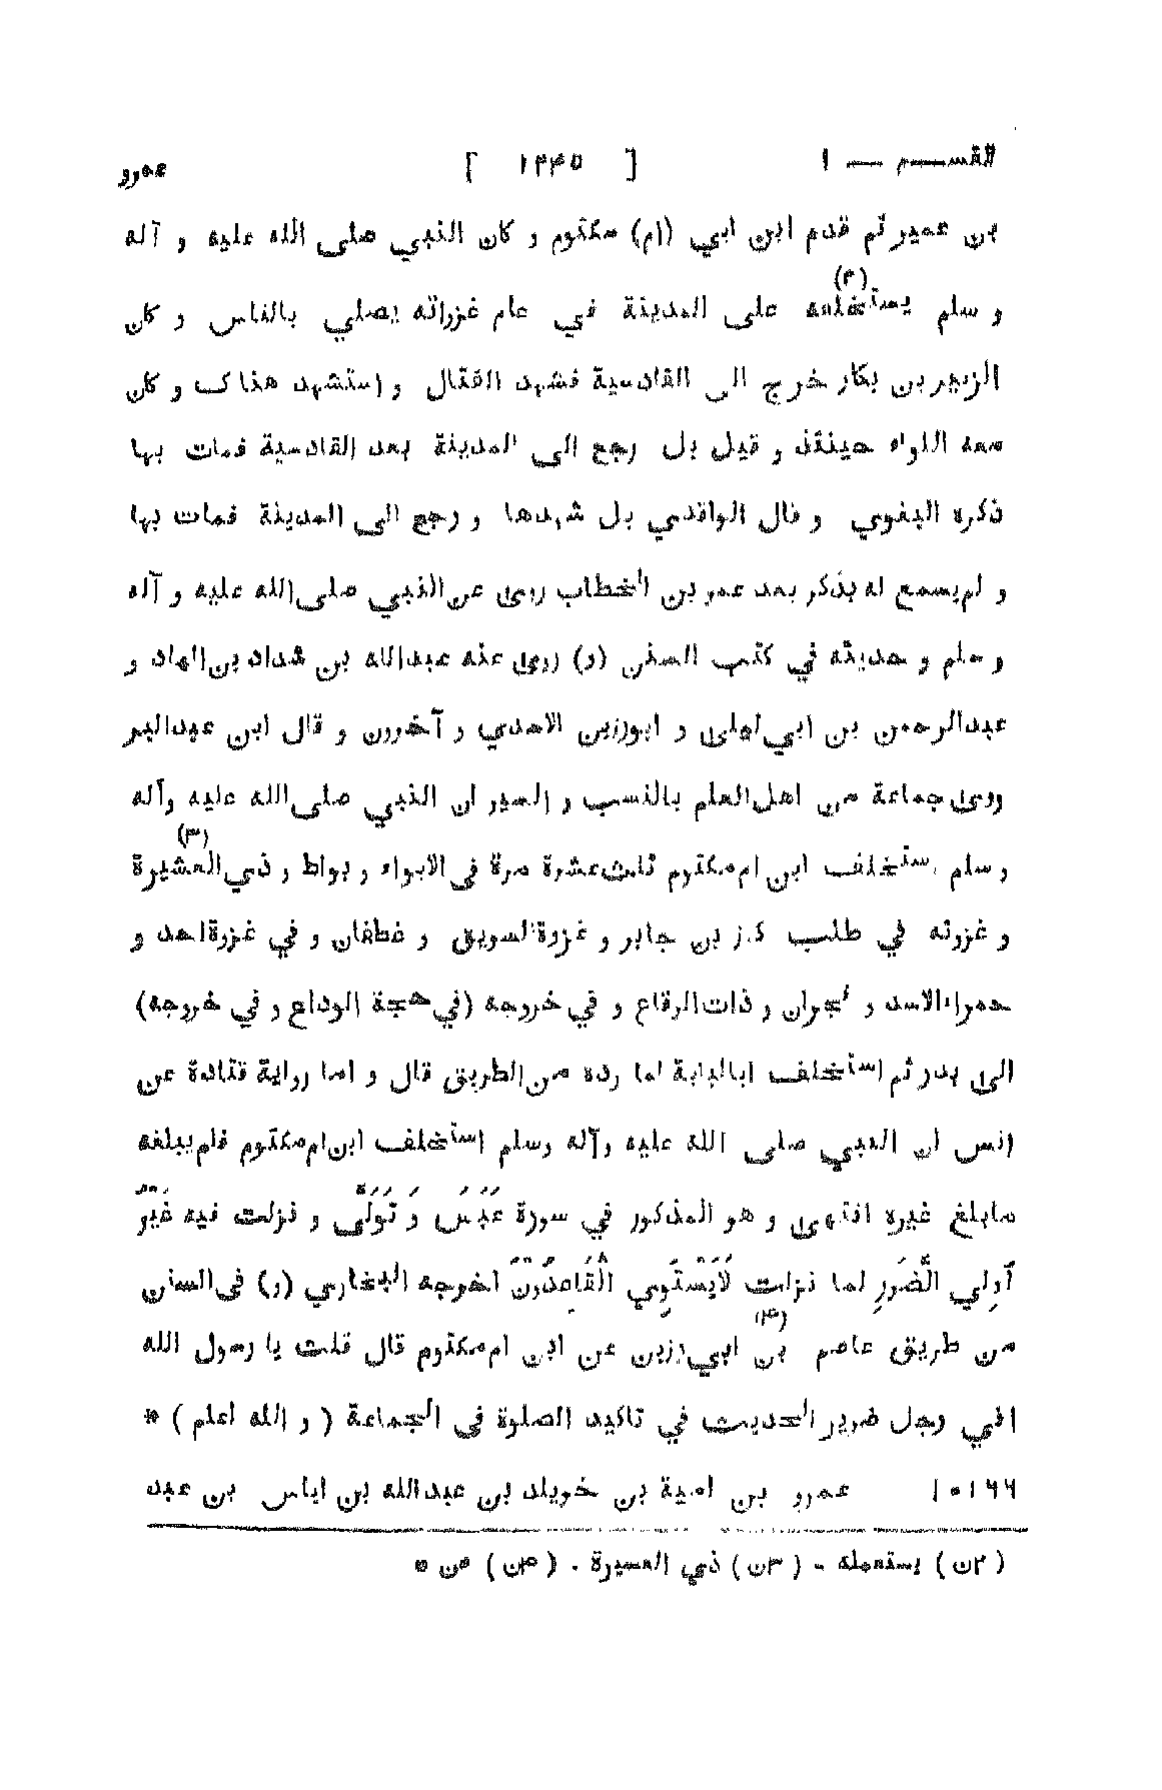 القســم — ١ [ ١٢٤٥ ] عمرو
بن عمير ثم قدم ابن ابي (ام) مكتوم و كان النبي صلى الله عليه و آله
و سلم يستخلفه (٢) على المدينة في عام غزواته يصلي بالناس و كان
الزبير بن بكار خرج الى القادسية فشهد القتال و استشهد هناك و كان
معه اللواء حينئذ و قيل بل رجع الى المدينة بعد القادسية فمات بها
ذكره البغوي و قال الواقدي بل شهدها و رجع الى المدينة فمات بها
و لم يسمع له بذكر بعد عمر بن الخطاب روى عن النبي صلى الله عليه و آله
و سلم و حديثه في كتب السنن (و) روى عنه عبدالله بن شداد بن الهاد و
عبدالرحمن بن ابي ليلى و ابورزين الاسدي و آخرون و قال ابن عبدالبر
روى جماعة من اهل العلم بالنسب و السير ان النبي صلى الله عليه وآله
و سلم استخلف ابن ام مكتوم ثلث عشرة مرة في الابواء و بواط و ذي العشيرة (٣)
و غزوته في طلب كرز بن جابر و غزوة السويق و غطفان و في غزوة احد و
حمراء الاسد و نجران و ذات الرقاع و في خروجه (في حجة الوداع و في خروجه)
الى بدر ثم استخلف ابالبابة لما رده من الطريق قال و اما رواية قتادة عن
انس ان النبي صلى الله عليه وآله وسلم استخلف ابن ام مكتوم فلم يبلغه
مابلغ غيره انتهى و هو المذكور في سورة عَبَسَ وَ تَوَلَّى و نزلت فيه غَيْرُ
أُولِي الضَّرَرِ لما نزلت لَايَسْتَوِي الْقَاعِدُوْنَ اخرجه البخاري (و) في السنن
من طريق عاصم بن (٤) ابي رزين عن ابن ام مكتوم قال قلت يا رسول الله
اني رجل ضرير الحديث في تاكيد الصلوة في الجماعة ( و الله اعلم ) *
١٠١٦٦ عمرو بن امية بن خويلد بن عبدالله بن اياس بن عبد
( ٢ن ) يستعمله - ( ٣ن ) ذي العسيرة . ( ٤ن ) عن *